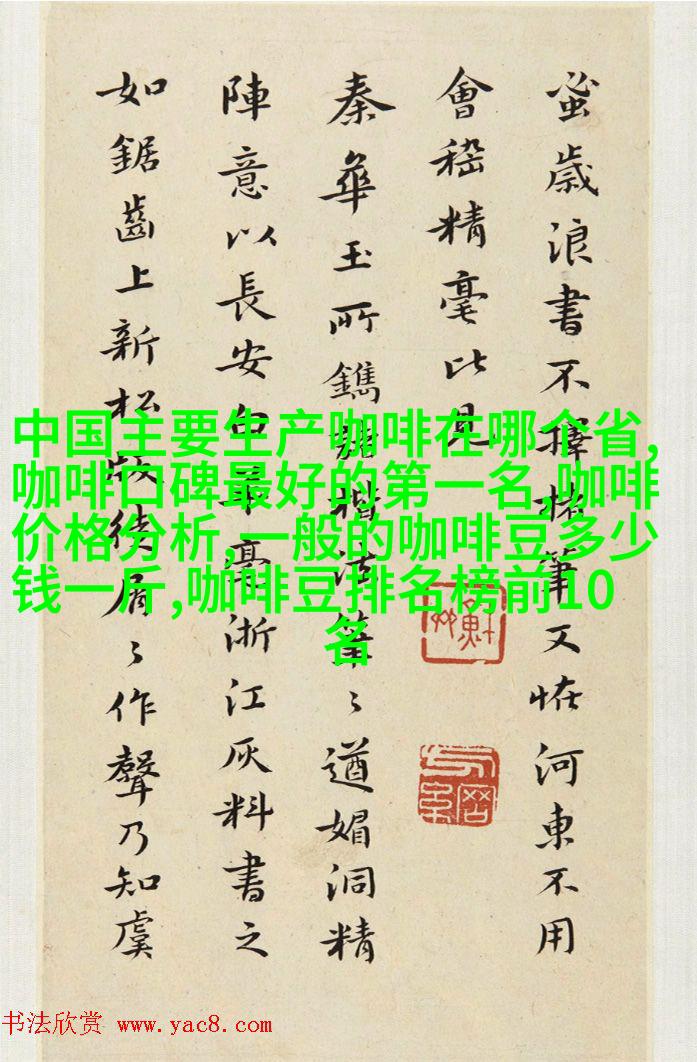 蚤歲浪書不擇楮筆又恠河東不用
會嵇精毫比見
秦華玉所鐫楷法筆〻遒媚洞精
陣意以長安白羊毫浙江灰料書之
如鋸齒上新松版徒屑〻作聲乃知虞
中国主要生产咖啡在哪个省,
咖啡口碑最好的第一名,咖啡
价格分析,一般的咖啡豆多少
钱一斤,咖啡豆排名榜前10
名
书法欣赏 www.yac8.com